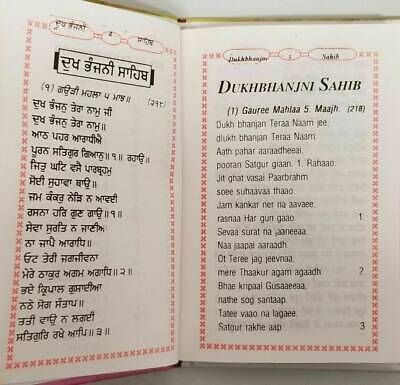 ਦੁਖ ਭੰਜਨੀ 4 ਸਾਹਿਬ
ਦੁਖ ਭੰਜਨੀ ਸਾਹਿਬ
(੧) ਗਉੜੀ ਮਹਲਾ ੫ ਮਾਝ॥ (੨੧੮)
ਦੁਖ ਭੰਜਨੁ ਤੇਰਾ ਨਾਮੁ ਜੀ
ਦੁਖ ਭੰਜਨੁ ਤੇਰਾ ਨਾਮੁ॥
ਆਠ ਪਹਰ ਆਰਾਧੀਐ
ਪੂਰਨ ਸਤਿਗੁਰ ਗਿਆਨੁ॥੧॥ ਰਹਾਉ॥
ਜਿਤੁ ਘਟਿ ਵਸੈ ਪਾਰਬ੍ਰਹਮੁ
ਸੋਈ ਸੁਹਾਵਾ ਥਾਉ॥
ਜਮ ਕੰਕਰੁ ਨੇੜਿ ਨ ਆਵਈ
ਰਸਨਾ ਹਰਿ ਗੁਣ ਗਾਉ॥੧॥
ਸੇਵਾ ਸੁਰਤਿ ਨ ਜਾਣੀਆ
ਨਾ ਜਾਪੈ ਆਰਾਧਿ॥
ਓਟ ਤੇਰੀ ਜਗਜੀਵਨਾ
ਮੇਰੇ ਠਾਕੁਰ ਅਗਮ ਅਗਾਧਿ॥੨॥
ਭਏ ਕ੍ਰਿਪਾਲ ਗੁਸਾਈਆ
ਨਠੇ ਸੋਗ ਸੰਤਾਪ॥
ਤਤੀ ਵਾਉ ਨ ਲਗਈ
ਸਤਿਗੁਰਿ ਰਖੇ ਆਪਿ॥੩॥
Dukhbhanjni 5 Sahib
DUKHBHANJNI SAHIB
(1) Gauree Mahlaa 5. Maajh. (218)
Dukh bhanjan Teraa Naam jee,
dlukh bhanjan Teraa Naam.
Aath pahar aaraadheeai,
pooran Satgur giaan. 1. Rahaao.
Jit ghat vasai Paarbrahm
soee suhaavaa thaao.
Jam kankar ner na aaveee,
rasnaa Har gun gaao. 1
Sevaa surat na jaaneeaa,
Naa jaapai aaraadh.
Ot Teree jag jeevnaa,
mere Thaakur agam agaadh. 2
Bhae kripaal Gusaaeeaa,
nathe sog santaap.
Tatee vaao na lagaee,
Satgur rakhe aap. 3